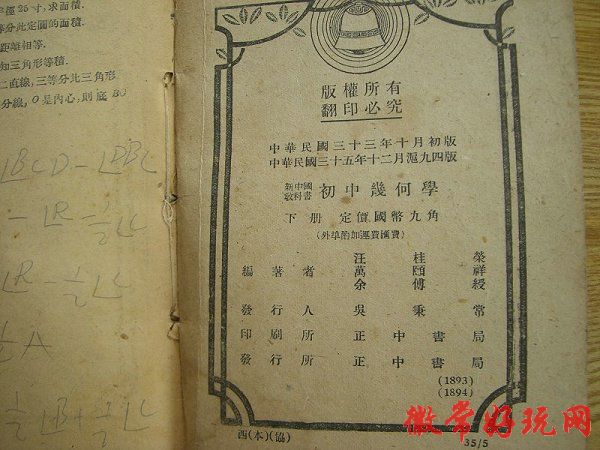 徑25寸,求面積.
分此定圓的面積.
距離相等.
知三角形等積.
二直線,三等分此三角形
分線,O是內心,則底BC
∠BCD - ∠DBC
- ∠R - 1/2∠C
∠R - 1/2∠C
1/2A
1/2∠B + 1/2∠C
版權所有
翻印必究
中華民國三十三年十月初版
中華民國三十五年十二月滬九四版
新中國教科書 初中幾何學
下冊 定價國幣九角
(外埠酌加運費匯費)
編著者 汪桂榮
萬頤祥
余傅綬
發行人 吳秉常
印刷所 正中書局
發行所 正中書局
(1893)
(1894)
西(本)(協)
35/5
徽帮好玩网